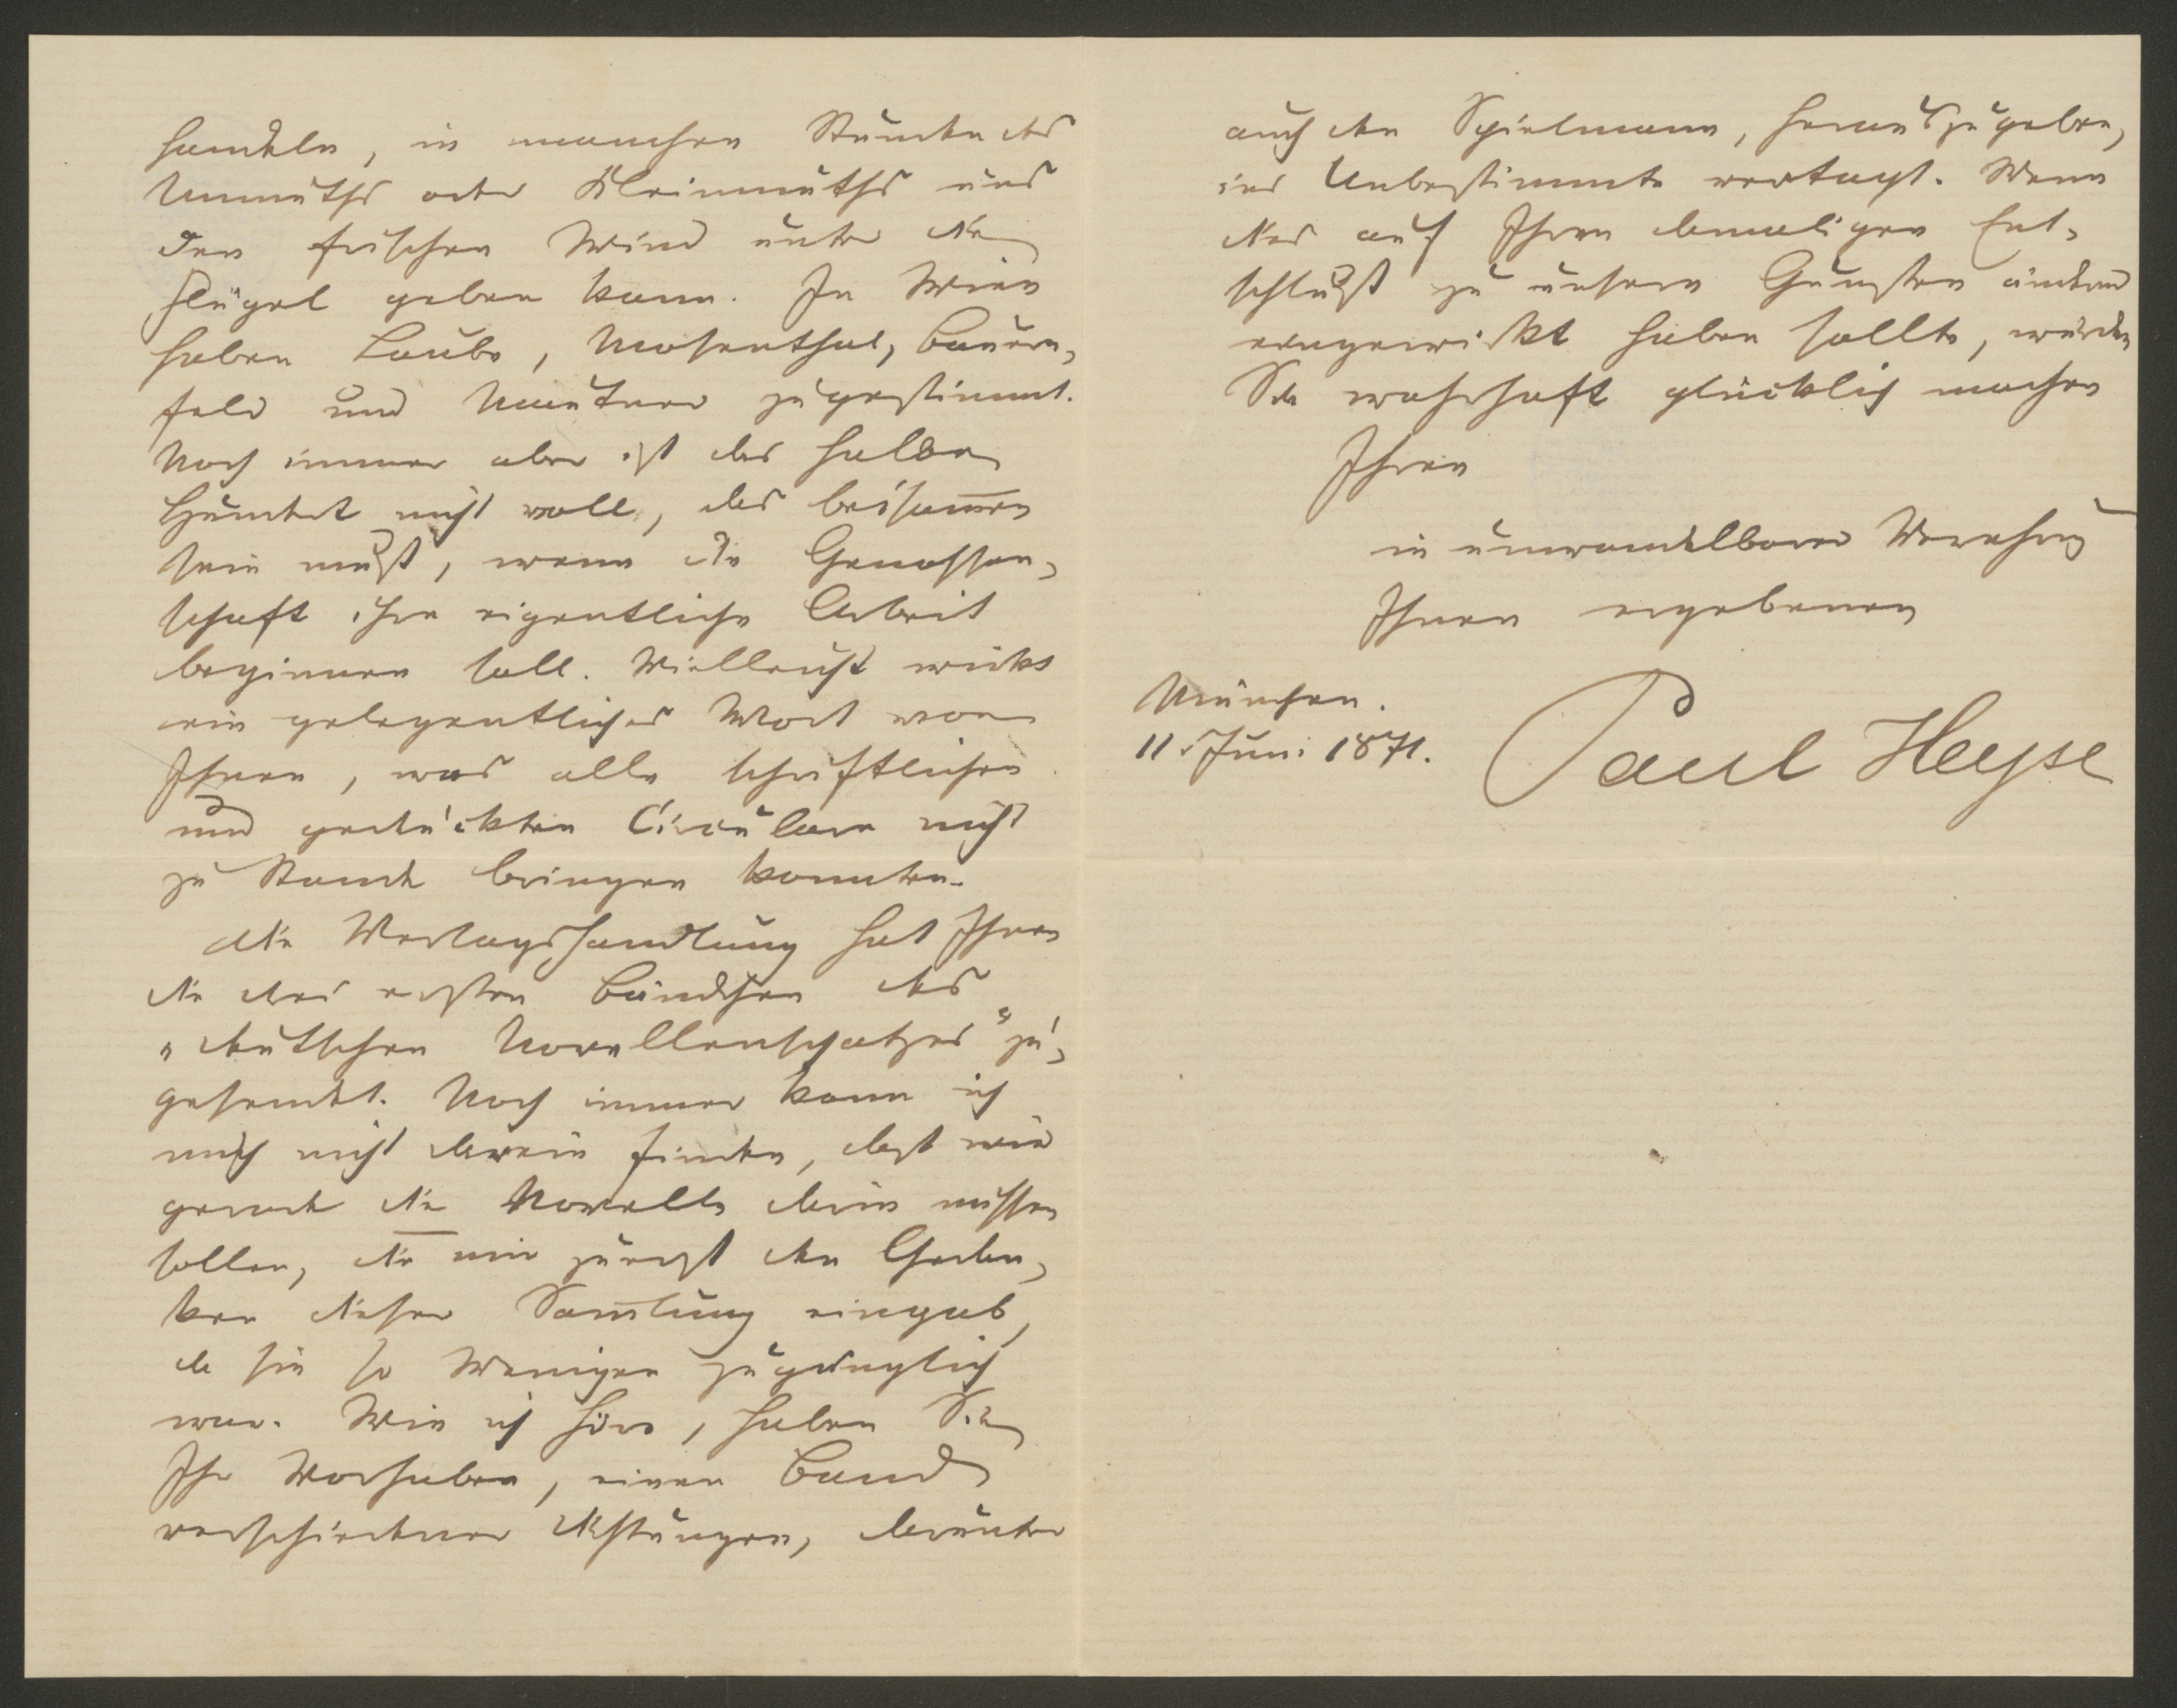 handeln, in manchen Stunden des
Unmuths oder Kleinmuths uns
den frischen Wind unter die
Flügel geben kann. In Wien
haben Laube, Mosenthal, Bauern-
feld und Mautner zugestimmt.
Noch immer aber ist das halbe
Hundert nicht voll, das beisam̅en
sein muß, wenn die Genossen-
schaft ihre eigentliche Arbeit
beginnen soll. Vielleicht wirkt
ein gelegentliches Wort von
Ihnen, was alle schriftlichen
und gedruckten Circulare nicht
zu Stande bringen konnten.
Die Verlagshandlung hat Ihnen
die drei ersten Bändchen des
„deutschen Novellenschatzes“ zu-
gesendet. Noch immer kann ich
mich nicht darein finden, daß wir
gerade die Novelle darin missen
sollen, die mir zuerst den Gedan-
ken dieser Sam̅lung eingab,
da sie so Wenigen zugänglich
war. Wie ich höre, haben Sie
Ihr Vorhaben, einen Band
verschiedener Dichtungen, darunter
auch den Spielmann, herauszugeben,
ins Unbestimmte vertagt. Wenn
dies auf Ihren damaligen Ent-
schluß zu unsern Gunsten ändernd
eingewirkt haben sollte, würden
Sie wahrhaft glücklich machen
Ihren
in unwandelbarer Verehrung
Ihnen ergebenen
München.
11. Juni 1871.
Paul Heyse